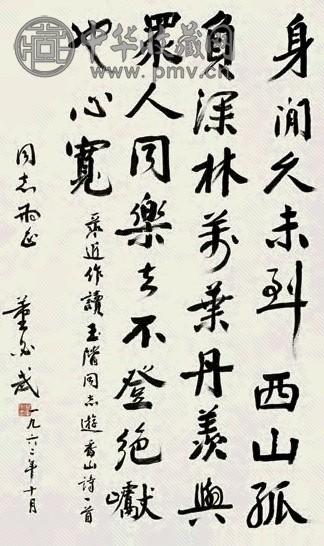 中华收藏网
www.pmv.cn
身閒久未到西山孤
負深林萬葉丹羨與
眾人同樂去不登絕巘
也心寬
录近作讀玉階同志遊香山詩一首
同志正
董必武
一九六二年十月